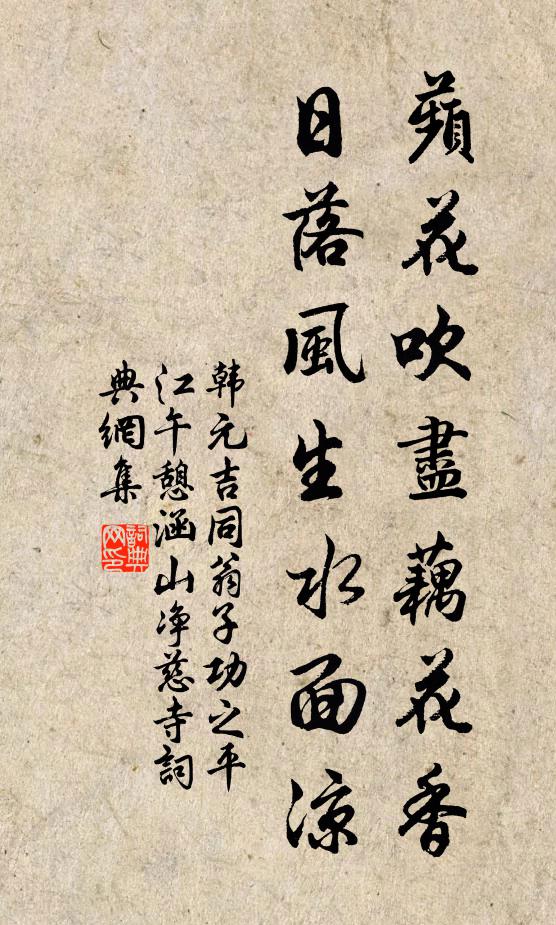 蘋花吹盡藕花香
日落風生水面涼
韩元吉同翁子功之平
江午憩涵山净慈寺詞
典網集
詞典网印